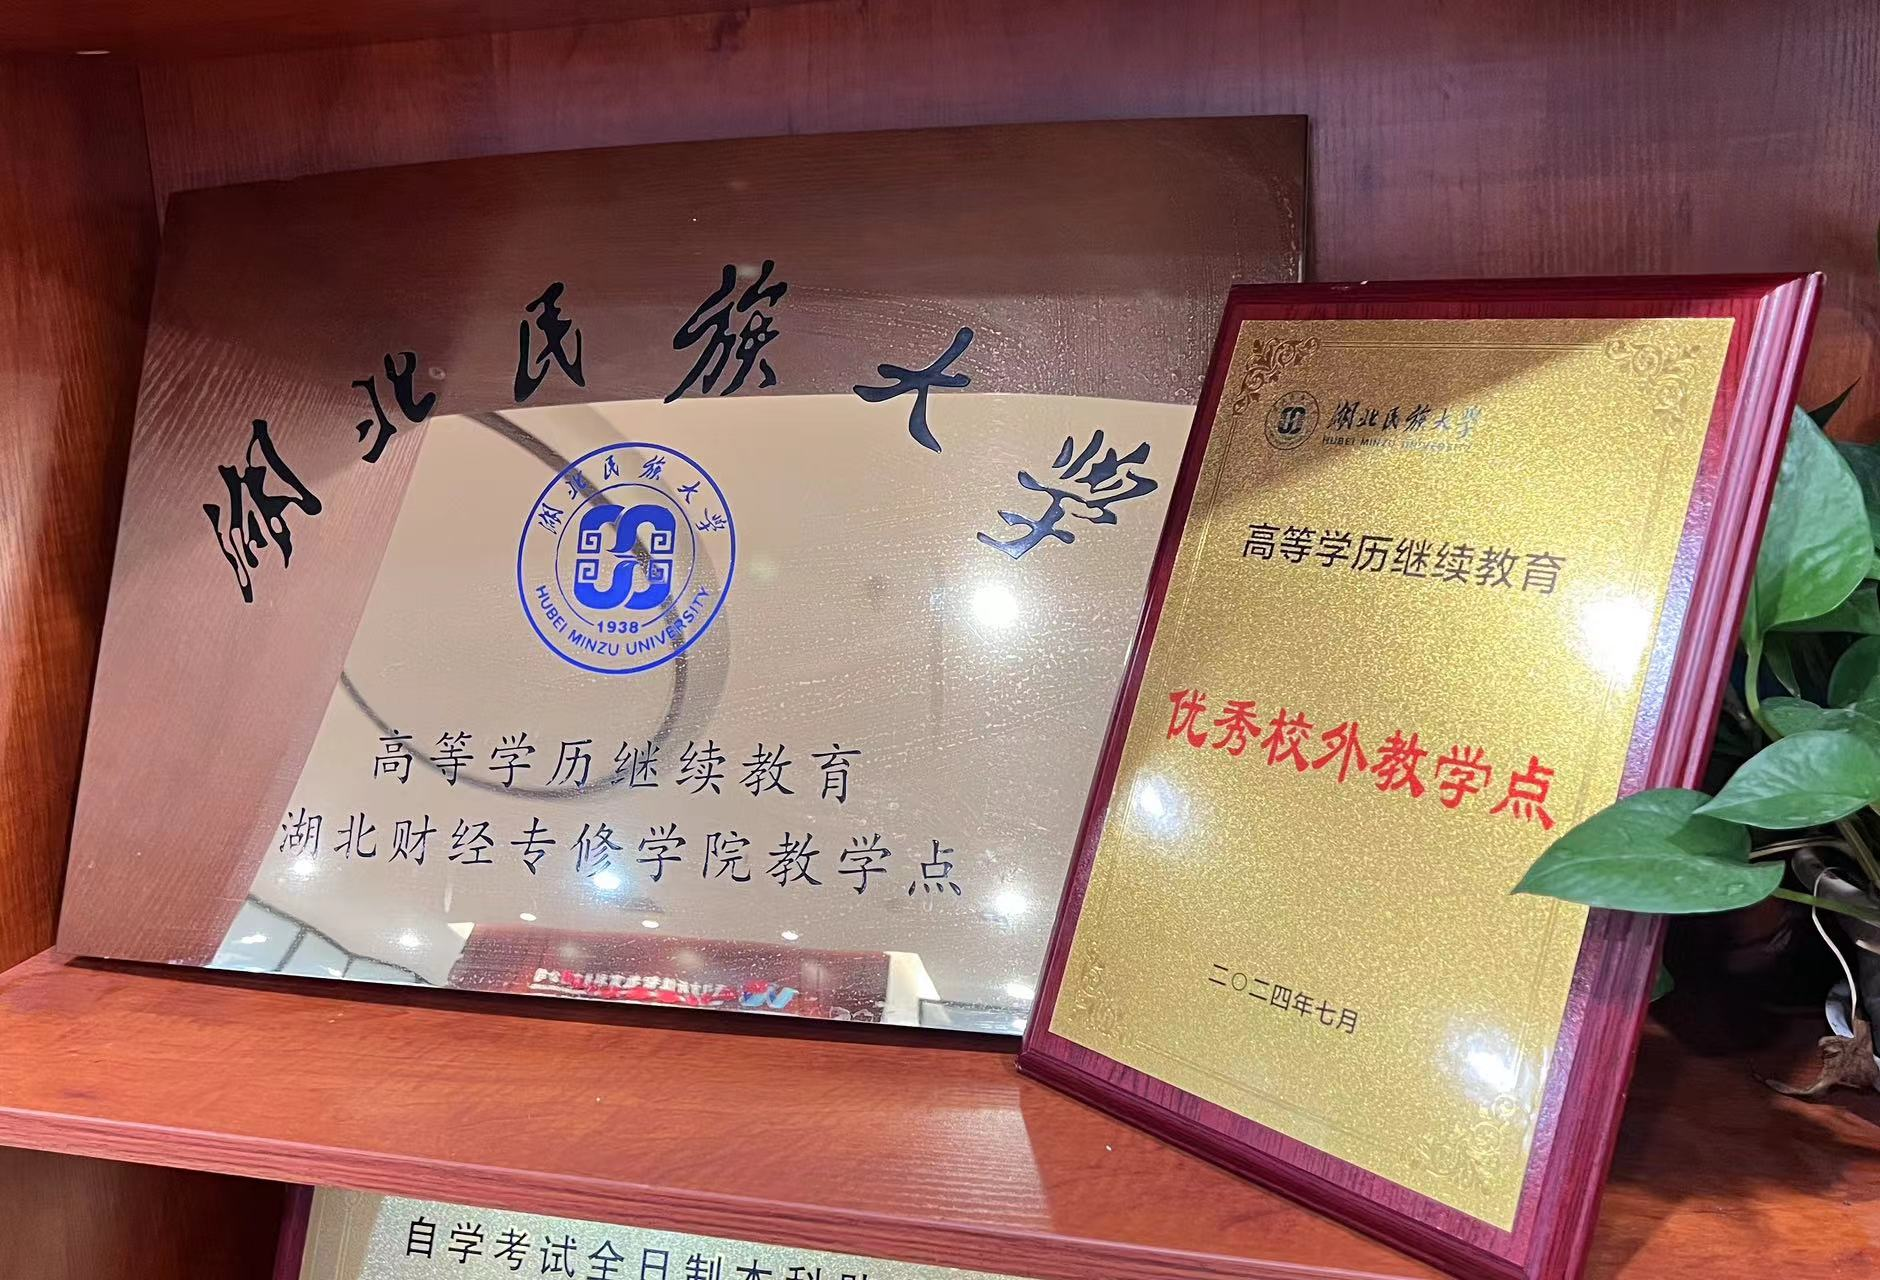 湖北民族大学
湖北民族大学
1938
HUBEI MINZU UNIVERSITY
高等学历继续教育
湖北财经专修学院教学点
湖北民族大学
HUBEI MINZU UNIVERSITY
高等学历继续教育
优秀校外教学点
二〇二四年七月
自学考试全日制本科助